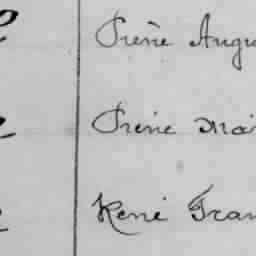 Irène Augu
Irène Mar
René Fran